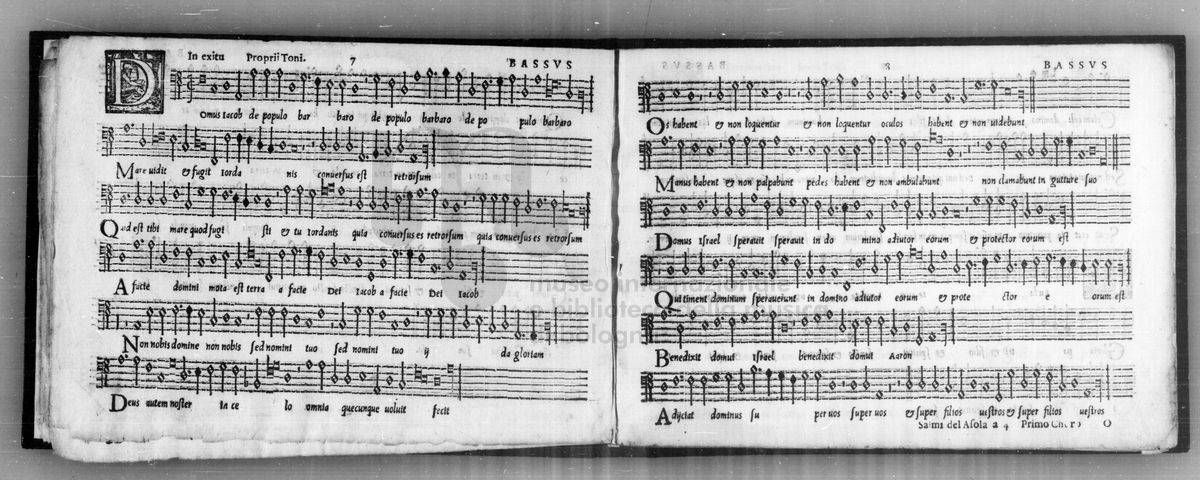 In exitu Proprii Toni. 7 BASSVS
DOmus Iacob de populo bar baro de populo barbaro de po pulo barbaro
Mare uidit & fugit Iorda nis conuersus est retrorsum
Quid est tibi mare quod fugi sti & tu Iordanis quia conuersus es retrorsum quia conuersus es retrorsum
A facie domini mota est terra a facie Dei Iacob a facie Dei Iacob
Non nobis domine non nobis sed nomini tuo sed nomini tuo ij da gloriam
Deus autem noster in ce lo omnia quecunque uoluit fecit
8 BASSVS
Os habent & non loquentur & non loquentur oculos habent & non uidebunt
Manus habent & non palpabunt pedes habent & non ambulabunt non clamabunt in gutture suo
Domus Israel sperauit sperauit in do mino adiutor eorum & protector eorum est
Qui timent dominum sperauerunt in domino adiutor eorum & prote ctor e orum est
Benedixit domui Israel benedixit domui Aaron
Adijciat dominus su per uos super uos & super filios uestros & super filios uestros
Salmi del Asola a 4 Primo Choro O
museo internazionale
e biblioteca della musica
di bologna